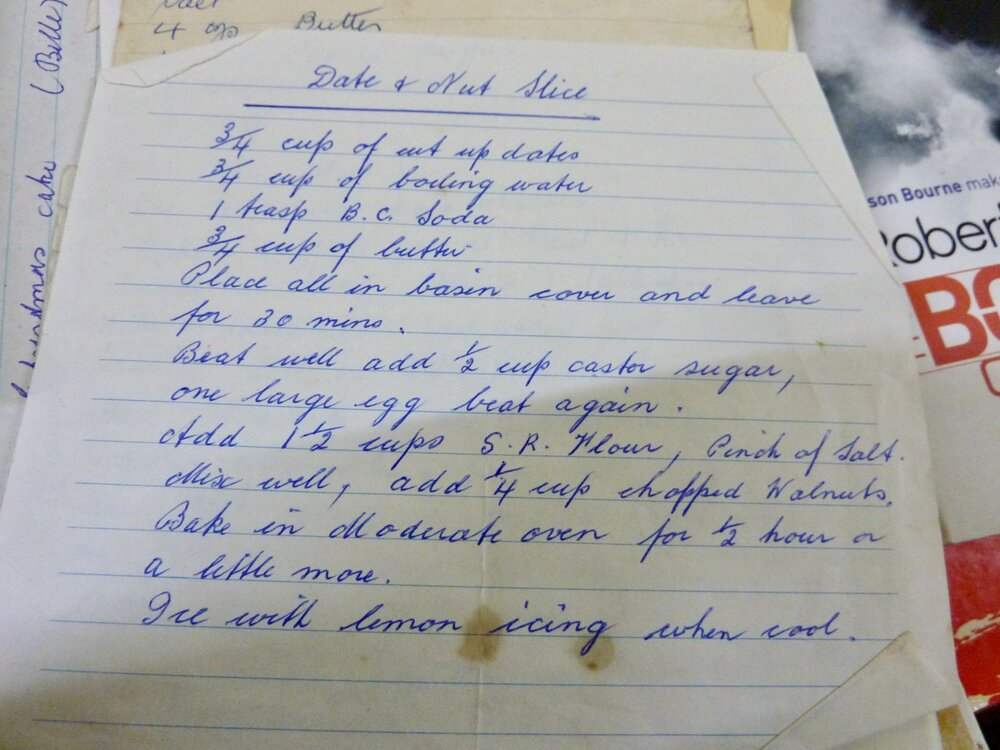 4 ozs Butter
(Belle)
cake
Date & Nut Slice
3/4 cup of cut up dates
3/4 cup of boiling water
1 teasp B.C. Soda
3/4 cup of butter
Place all in basin cover and leave
for 30 mins.
Beat well add 1/2 cup castor sugar,
one large egg beat again.
Add 1 1/2 cups S.R. Flour, Pinch of Salt.
Mix well, add 1/4 cup chopped Walnuts.
Bake in Moderate oven for 1/2 hour or
a little more.
Ice with lemon icing when cool.
son Bourne make
Rober
BO